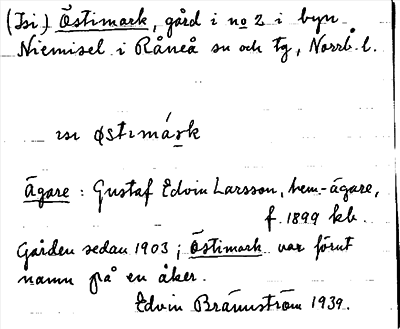 (Isi) Östimark, gård i no 2 i byn
Niemisel i Råneå sn och tg, Norrb. l.
ɪsɪ østɪmáṣk
Ägare: Gustaf Edvin Larsson, hem.-ägare,
f. 1899 kb.
Gården sedan 1903; Östimark var förut
namn på en åker.
Edvin Brännström 1939.